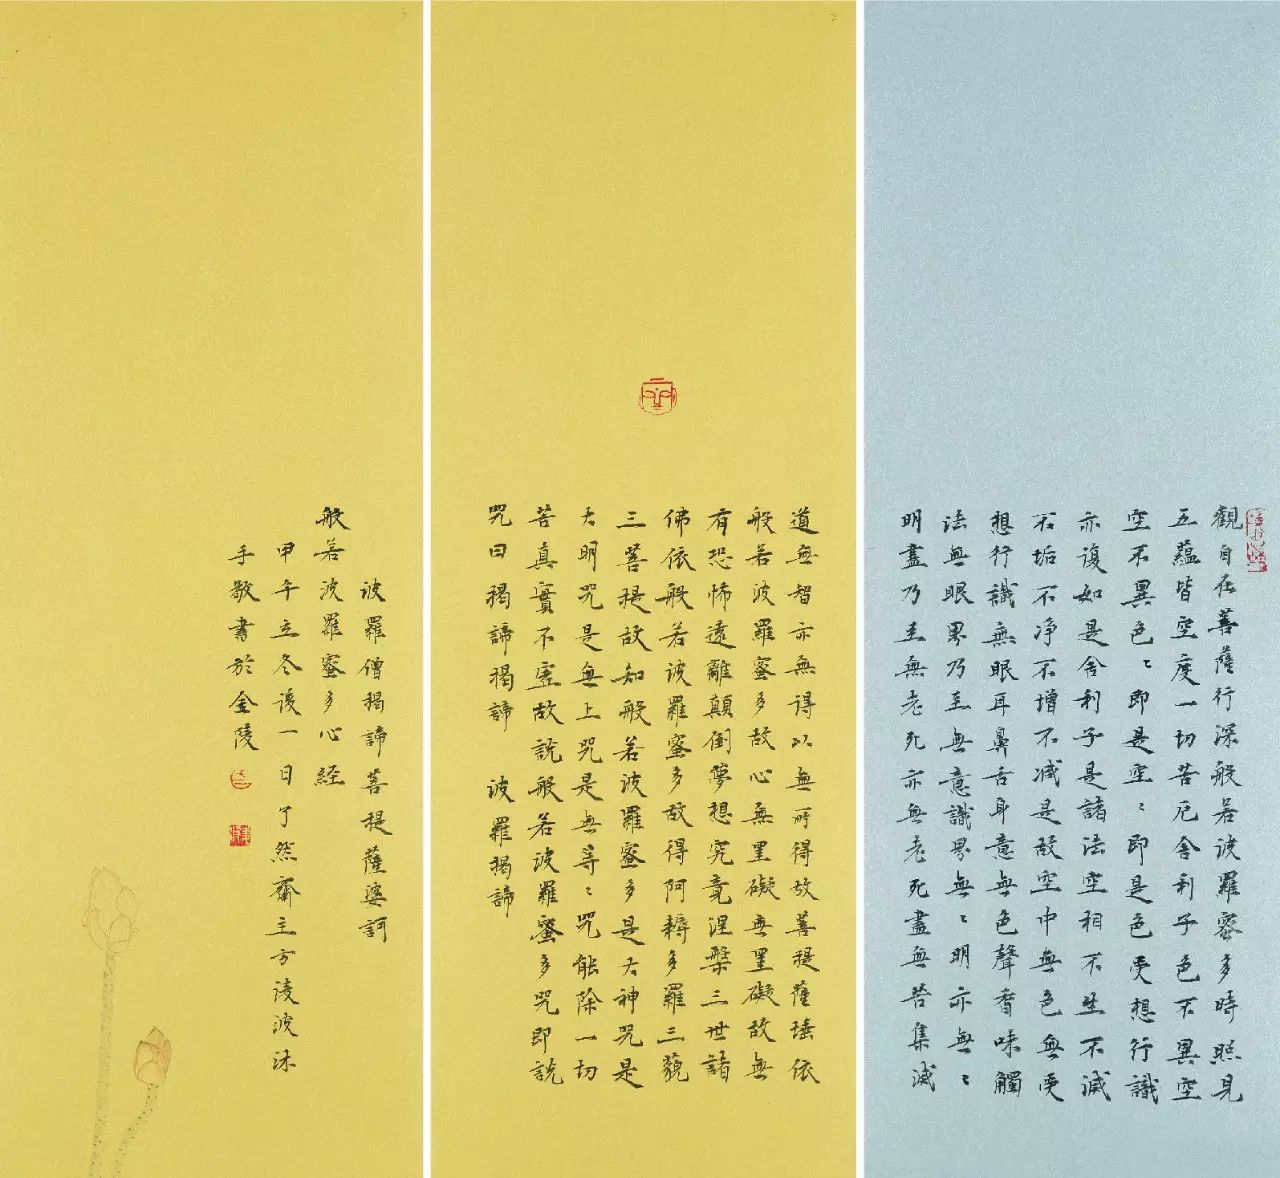 觀自在菩薩行深般若波羅蜜多時照見
五蘊皆空度一切苦厄舍利子色不異空
空不異色〻即是空〻即是色受想行識
亦復如是舍利子是諸法空相不生不滅
不垢不净不增不减是故空中無色無受
想行識無眼耳鼻舌身意無色聲香味觸
法無眼界乃至無意識界無〻明亦無〻
明盡乃至無老死亦無老死盡無苦集滅
道無智亦無得以無所得故菩提薩埵依
般若波羅蜜多故心無罣礙無罣礙故無
有恐怖遠離顛倒夢想究竟涅槃三世諸
佛依般若波羅蜜多故得阿耨多羅三藐
三菩提故知般若波羅蜜多是大神咒是
大明咒是無上咒是無等〻咒能除一切
苦真實不虛故說般若波羅蜜多咒即說
咒曰揭諦揭諦 波羅揭諦
波羅僧揭諦菩提薩婆訶
般若波羅蜜多心経
甲午立冬後一日了然齋主方凌波沐
手敬書於金陵